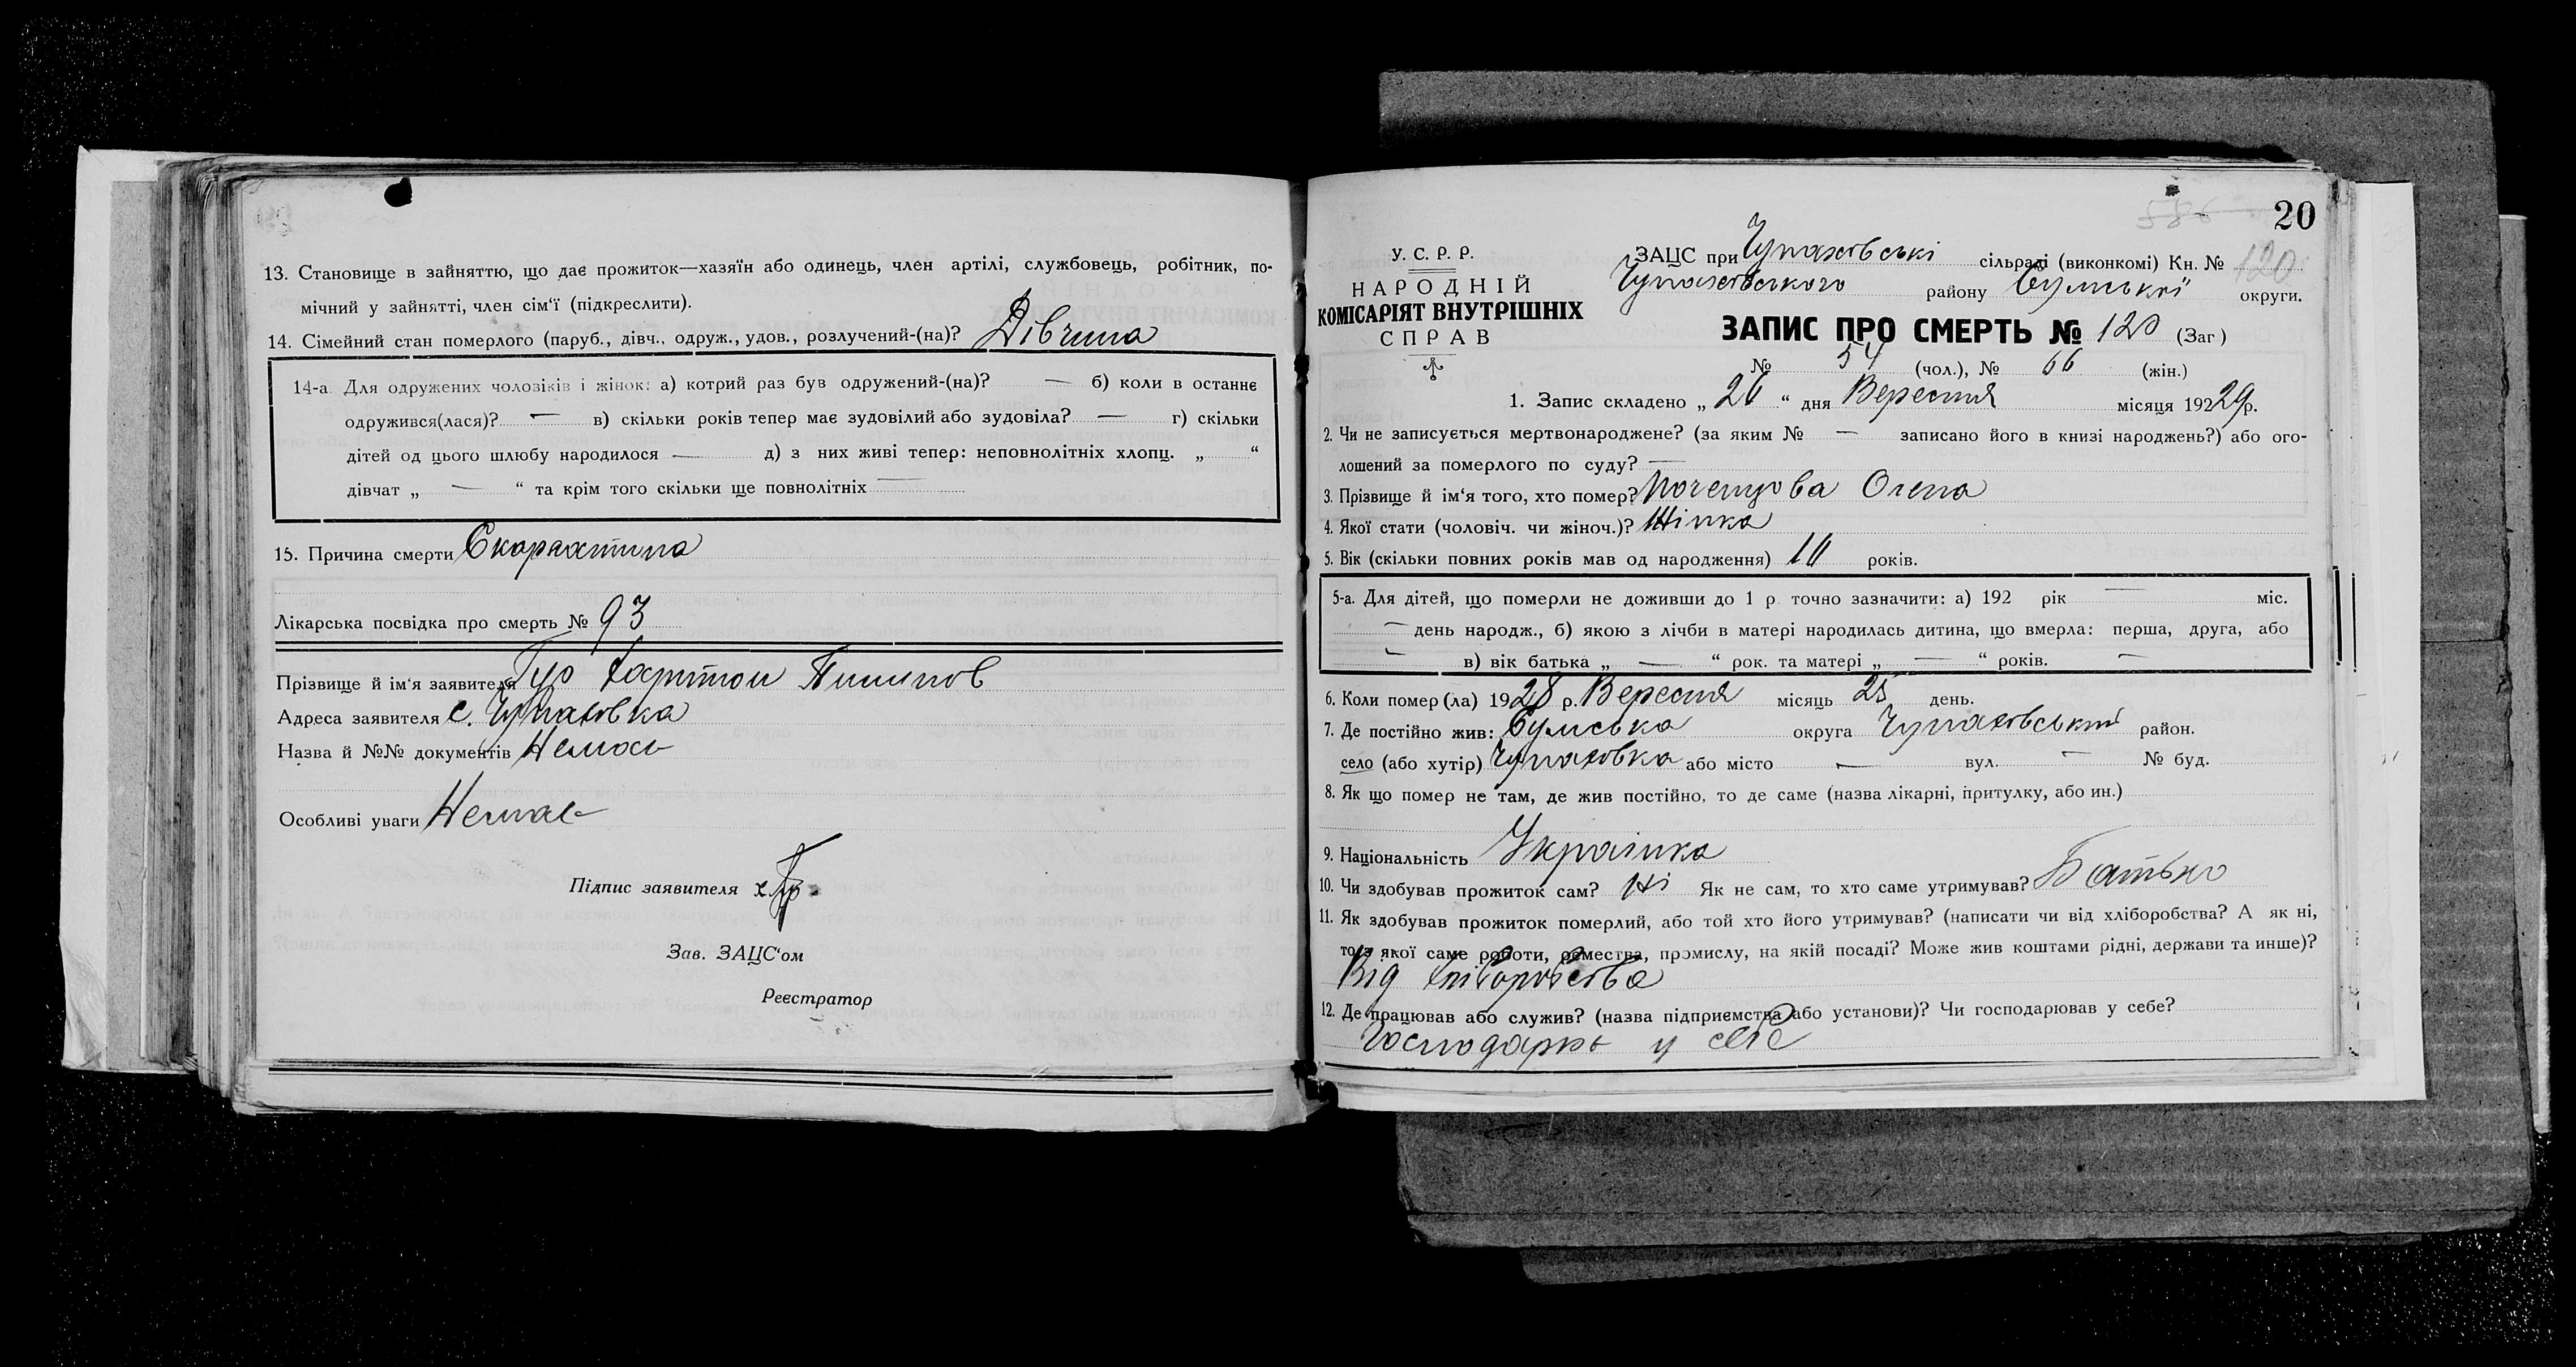 13. Становище в зайняттю, що дає прожиток—хазяїн або одинець, член артілі, службовець, робітник, по-
мічний у зайнятті, член сім'ї (підкреслити).
14. Сімейний стан померлого (паруб., дівч., одруж., удов., розлучений-(на)? Дівчина
14-а Для одружених чоловіків і жінок: а) котрий раз був одружений-(на)? — б) коли в останнє
одружився(лася)? — в) скільки років тепер має зудовілий або зудовіла? — г) скільки
дітей од цього шлюбу народилося — д) з них живі тепер: неповнолітніх хлопц. „ “
дівчат „ — “ та крім того скільки ще повнолітніх —
15. Причина смерти Скарлятина
Лікарська посвідка про смерть № 93
Прізвище й ім'я заявителя Гур Харитон Пилипов
Адреса заявителя с. Чупаховка
Назва й №№ документів Немає
Особливі уваги Немає
Підпис заявителя
Зав. ЗАЦС'ом
Реєстратор
20
У. С. Р. Р.
НАРОДНІЙ
КОМІСАРІЯТ ВНУТРІШНІХ
СПРАВ
ЗАЦС при Чупаховські сільраді (виконкомі) Кн. № 120
Чупаховського району Сумської округи.
ЗАПИС ПРО СМЕРТЬ № 120 (Заг)
№ 54 (чол.), № 66 (жін.)
1. Запис складено „ 26 “ дня Вересня місяця 19229р.
2. Чи не записується мертвонароджене? (за яким № — записано його в книзі народжень?) або ого-
лошений за померлого по суду? —
3. Прізвище й ім'я того, хто помер? Олена
4. Якої стати (чоловіч. чи жіноч.)? Жінка
5. Вік (скільки повних років мав од народження) років.
5-а. Для дітей, що померли не доживши до 1 р. точно зазначити: а) 192 рік — міс.
— день народж., б) якою з лічби в матері народилась дитина, що вмерла: перша, друга, або
— в) вік батька „ — “ рок. та матері „ — “ років. —
6. Коли помер (ла) 1928 р. Вересня місяць 25 день.
7. Де постійно жив: Сумська округа Чупаховський район.
село (або хутір) Чупаховка або місто — вул. — № буд.
8. Як що помер не там, де жив постійно, то де саме (назва лікарні, притулку, або ин.)
9. Національність Українка
10. Чи здобував прожиток сам? Ні Як не сам, то хто саме утримував? Батько
11. Як здобував прожиток померлий, або той хто його утримував? (написати чи від хліборобства? А як ні,
то з якої саме роботи, ремества, промислу, на якій посаді? Може жив коштами рідні, держави та инше)?
Від хліборобства
12. Де працював або служив? (назва підприємства або установи)? Чи господарював у себе?
Господарює у себе